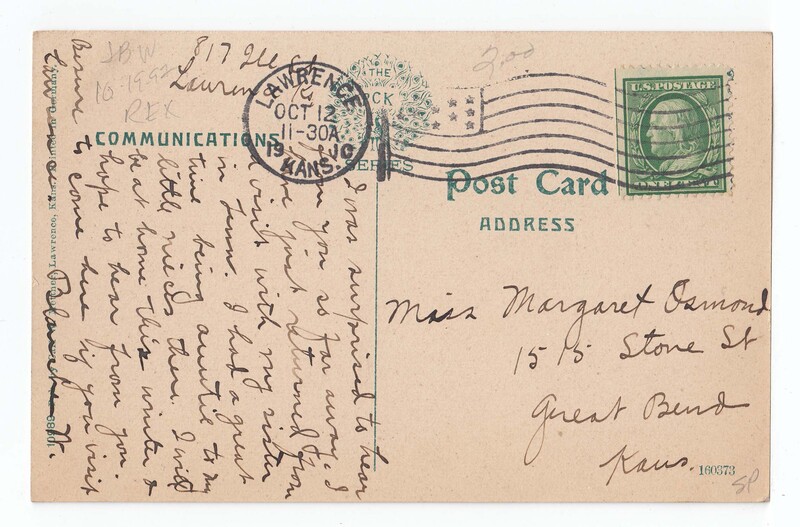 JBW
10-1992
REX
2.00
817
Lawren
LAWRENCE
OCT 12
11-30A
19 10
KANS.
THE
SERIES
U.S. POSTAGE
COMMUNICATIONS
Post Card
ADDRESS
I was surprised to hear
from you so far away. I
have just returned from
a visit with my sister
in Tenn. I had a great
time being auntie to my
little nieces there. I will
be at home this winter &
hope to hear from you.
Besure to come here if you visit
Lawrence. Blanche N.
Miss Margaret Osmond
1515 Stone St
Great Bend
Kans.
160373
SP
Lawrence, Kans. Printed in Germany